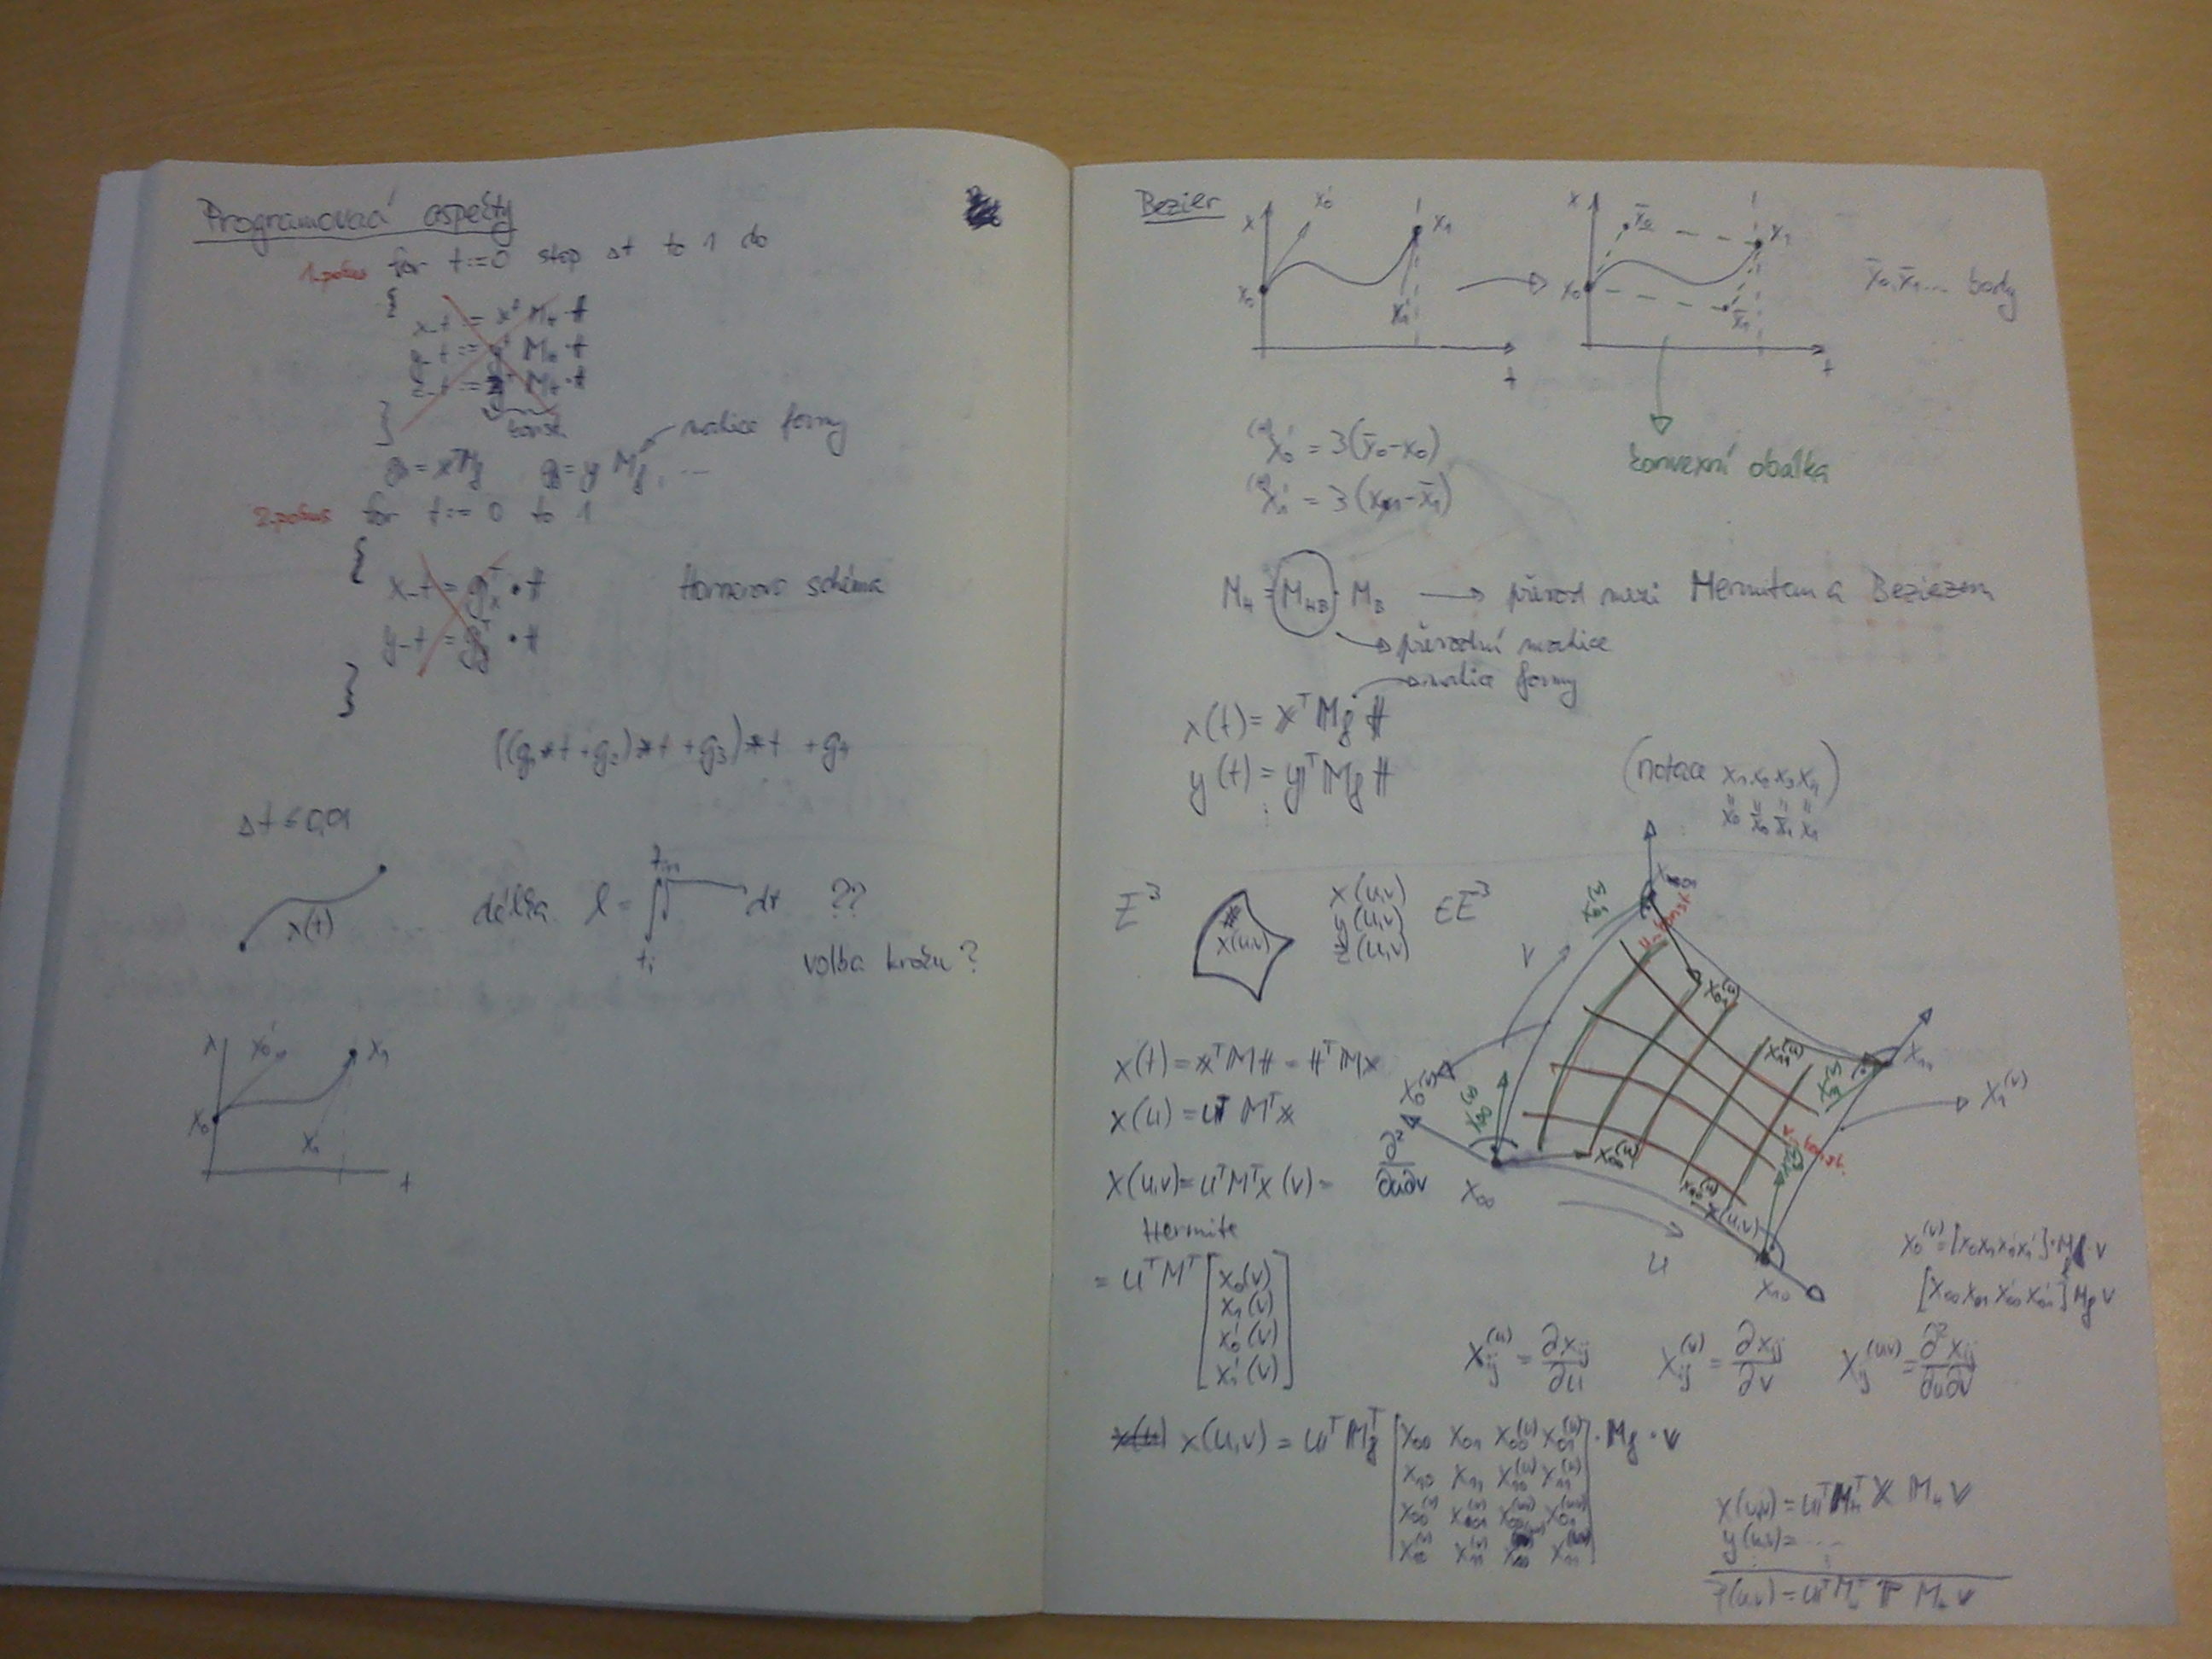 Programovací aspekty
1. pokus for t:=0 step Δt to 1 do
{
x_t := xᵀ M_f · t
y_t := yᵀ M_f · t
z_t := zᵀ M_f · t
}
konst.
matice formy
g = xᵀM_f g = y M_f, ...
2. pokus for t:= 0 to 1
{
x_t = gₓᵀ · t
Hornerovo schéma
y_t = g_yᵀ · t
}
((g₁*t+g₂)*t+g₃)*t+g₄
Δt = 0,01
x(t)
délka l = ∫ dt ??
tᵢ
volba kroku?
x x₀' x₁
x₀
x₁'
t
Bezier
x x₀' x₁
x₀ x₁'
t
x x̄₀ x₁
x₀ x̄₁
t
x̄₀, x̄₁ ... body
konvexní obálka
x₀' = 3(x̄₀-x₀)
x₁' = 3(x₁-x̄₁)
M_H = M_HB · M_B → převod mezi Hermitem a Bezierem
převodní matice
matice formy
x(t) = xᵀ M_f t
y(t) = yᵀ M_f t
(notace x₁ x₂ x₃ x₄)
x₀ x̄₀ x̄₁ x₁
E³
x(u,v)
x(u,v)
y(u,v) ∈E³
z(u,v)
x(t) = xᵀMt = tᵀMx
x(u) = uᵀMᵀx
x(u,v) = uᵀMᵀx(v) =
Hermite
= uᵀMᵀ [x₀(v)
x₁(v)
x₀'(v)
x₁'(v)]
x₀₁
u=konst
V
x₀₁⁽ᵘ⁾
x₁₁⁽ᵘ⁾
x₁₁
x₁⁽ᵛ⁾
x₀⁽ᵛ⁾
v=konst.
∂²
∂u∂v
x₀₀
x₀₀⁽ᵘ⁾
x₁₀⁽ᵘ⁾
x(u,v)
u
x₁₀
x₀⁽ᵛ⁾ = [x₀x₁x₀'x₁']·M_f·v
[x₀₀ x₀₁ x₀₀' x₀₁'] M_f v
xᵢⱼ⁽ᵘ⁾ = ∂xᵢⱼ/∂u xᵢⱼ⁽ᵛ⁾ = ∂xᵢⱼ/∂v xᵢⱼ⁽ᵘᵛ⁾ = ∂²xᵢⱼ/∂u∂v
x(u,v) = uᵀM_fᵀ [x₀₀ x₀₁ x₀₀⁽ᵘ⁾ x₀₁⁽ᵘ⁾ · M_f · v
x₁₀ x₁₁ x₁₀⁽ᵘ⁾ x₁₁⁽ᵘ⁾
x₀₀⁽ᵛ⁾ x₀₁⁽ᵛ⁾ x₀₀⁽ᵘᵛ⁾ x₀₁⁽ᵘᵛ⁾
x₁₀⁽ᵛ⁾ x₁₁⁽ᵛ⁾ x₁₀ x₁₁⁽ᵘᵛ⁾]
x(u,v) = uᵀM_Hᵀ X M_H v
y(u,v) = ...
P(u,v) = uᵀM_Hᵀ P M_H v